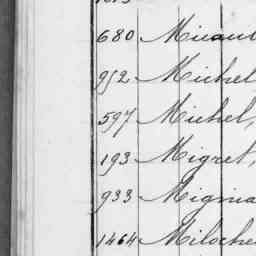 680 Micaul
952 Michel
597 Michel,
193 Migret,
933 Mignia
1464 Miloche